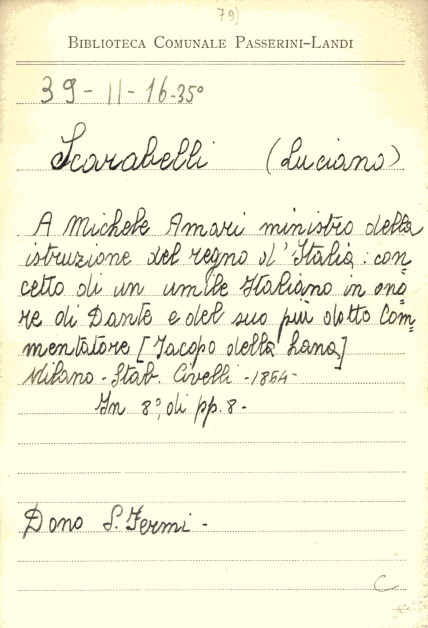 79)
BIBLIOTECA COMUNALE PASSERINI-LANDI
39-11-16-35°
Scarabelli (Luciano)
A Michele Amari ministro della
istruzione del regno d'Italia: con=
cetto di un umile Italiano in ono=
re di Dante e del suo più dotto Com=
mentatore [Jacopo della Lana]
Milano - Stab. Civelli - 1864-
In 8°, di pp. 8-
Dono S. Fermi -
C